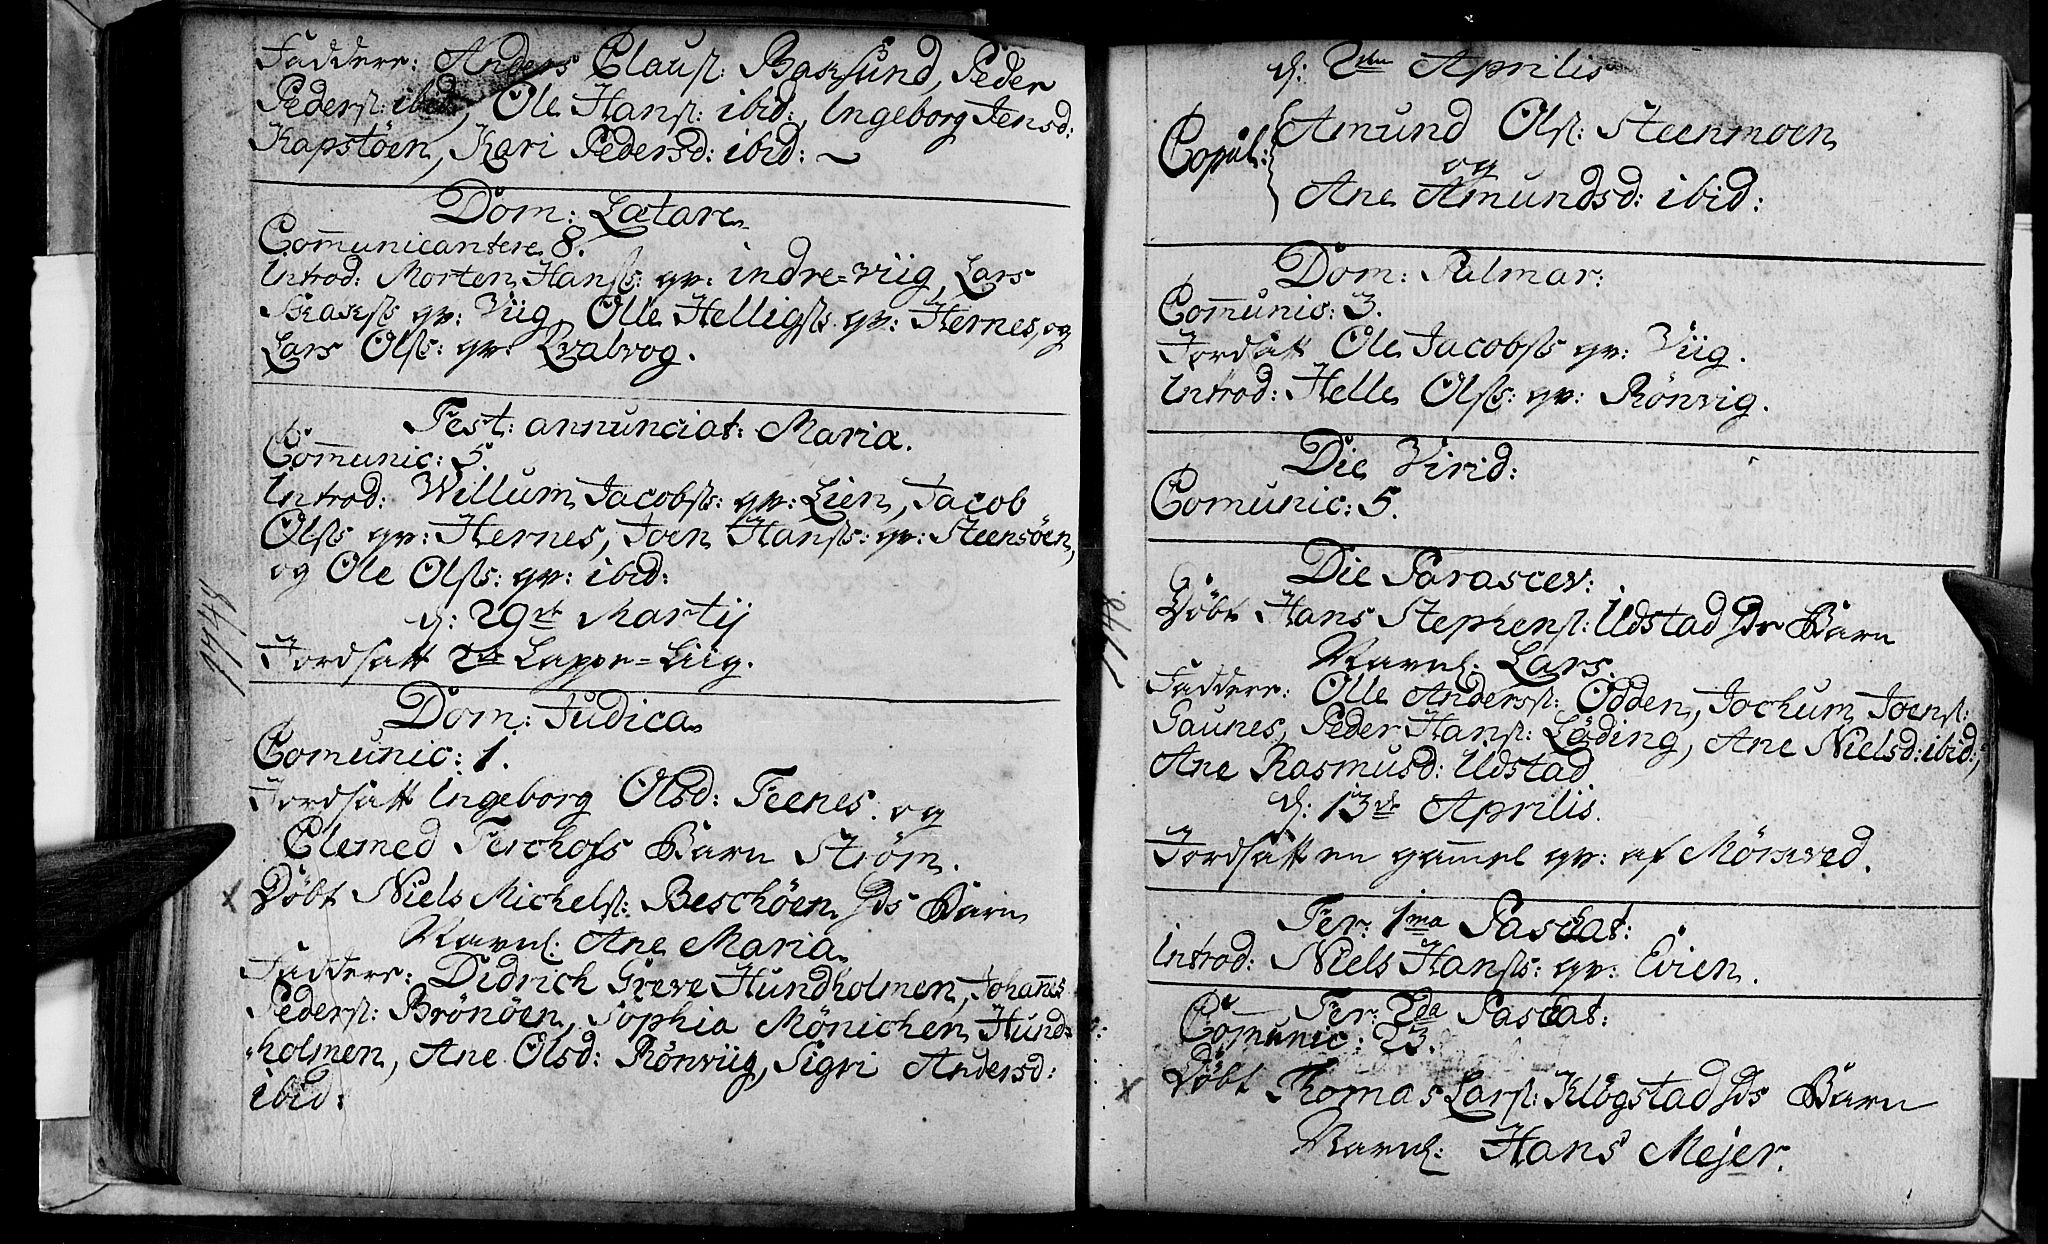 Faddere: Anders Clausſ: Baksund, Peder
Pedersſ: ibid:, Ole Hansſ: ibid:, Ingeborg Jensd:
Kapstöen, Kari Pedersd: ibid:
Dom: Lætare
Com̄unicantere 8.
Introd: Morten Hansſs: qv: indre=Viig, Lars
Isaksſs qv: Viig, Olle Helligsſs. qv: Hernes, og
Lars Olsſs: qv: Qvalvog.
Fest: annunciat: Mariæ.
Com̄unic: 5.
Introd: Willum Jacobsſs: qv: Lien, Jacob
Olsſs qv: Hernes, Joen Hansſs: qv: Steensöen,
og Ole Olsſs: qv: ibid:
d: 29de Martij
Jordsatt 2de Lappe=Liig.
1748
Dom: Judica
Com̄unic: 1.
Jordsatt Ingeborg Olsd: Feenes. og
Clemed Ferchofs Barn Strøm.
x Döbt Niels Michelsſ: Beschöen hds Barn
Navnl: Ane Maria
Faddere: Didrich Greve Hundholmen, Johan̄es
Pedersſ: Brönöen, Sophia Mönichen Hund=
holmen, Ane Olsd: Rönviig, Sigri Andersd:
ibid:
d: 2den Aprilis
Copul: Amund Olsſ: Steenmoen
og
Ane Amundsd: ibid:
Dom: Palmar:
Com̄unic: 3.
Jordsatt Ole Jacobsſs qv: Viig.
Introd: Helle Olsſs: qv: Rönvig.
Die Virid:
Com̄unic: 5.
Die Parascev:
1748.
Döbt Hans Stephensſ: Udstad hds Barn
Navnl: Lars.
Faddere: Olle Andersſ: Odden, Jochum Joensſ:
Saunes, Peder Hansſ: Löding, Ane Nielsd: ibid:,
Ane Rasmusd: Udstad
d: 13de Aprilis.
Jordsatt en gam̄el qv: af Mörkved.
Fer: 1ma Paschat:
Introd: Niels Hansſs: qv: Evien.
Fer: 2da Paschat:
Com̄unic: 23.
x Döbt Thomas Larsſ: Klögstad hds Barn
Navnl: Hans Mejer.